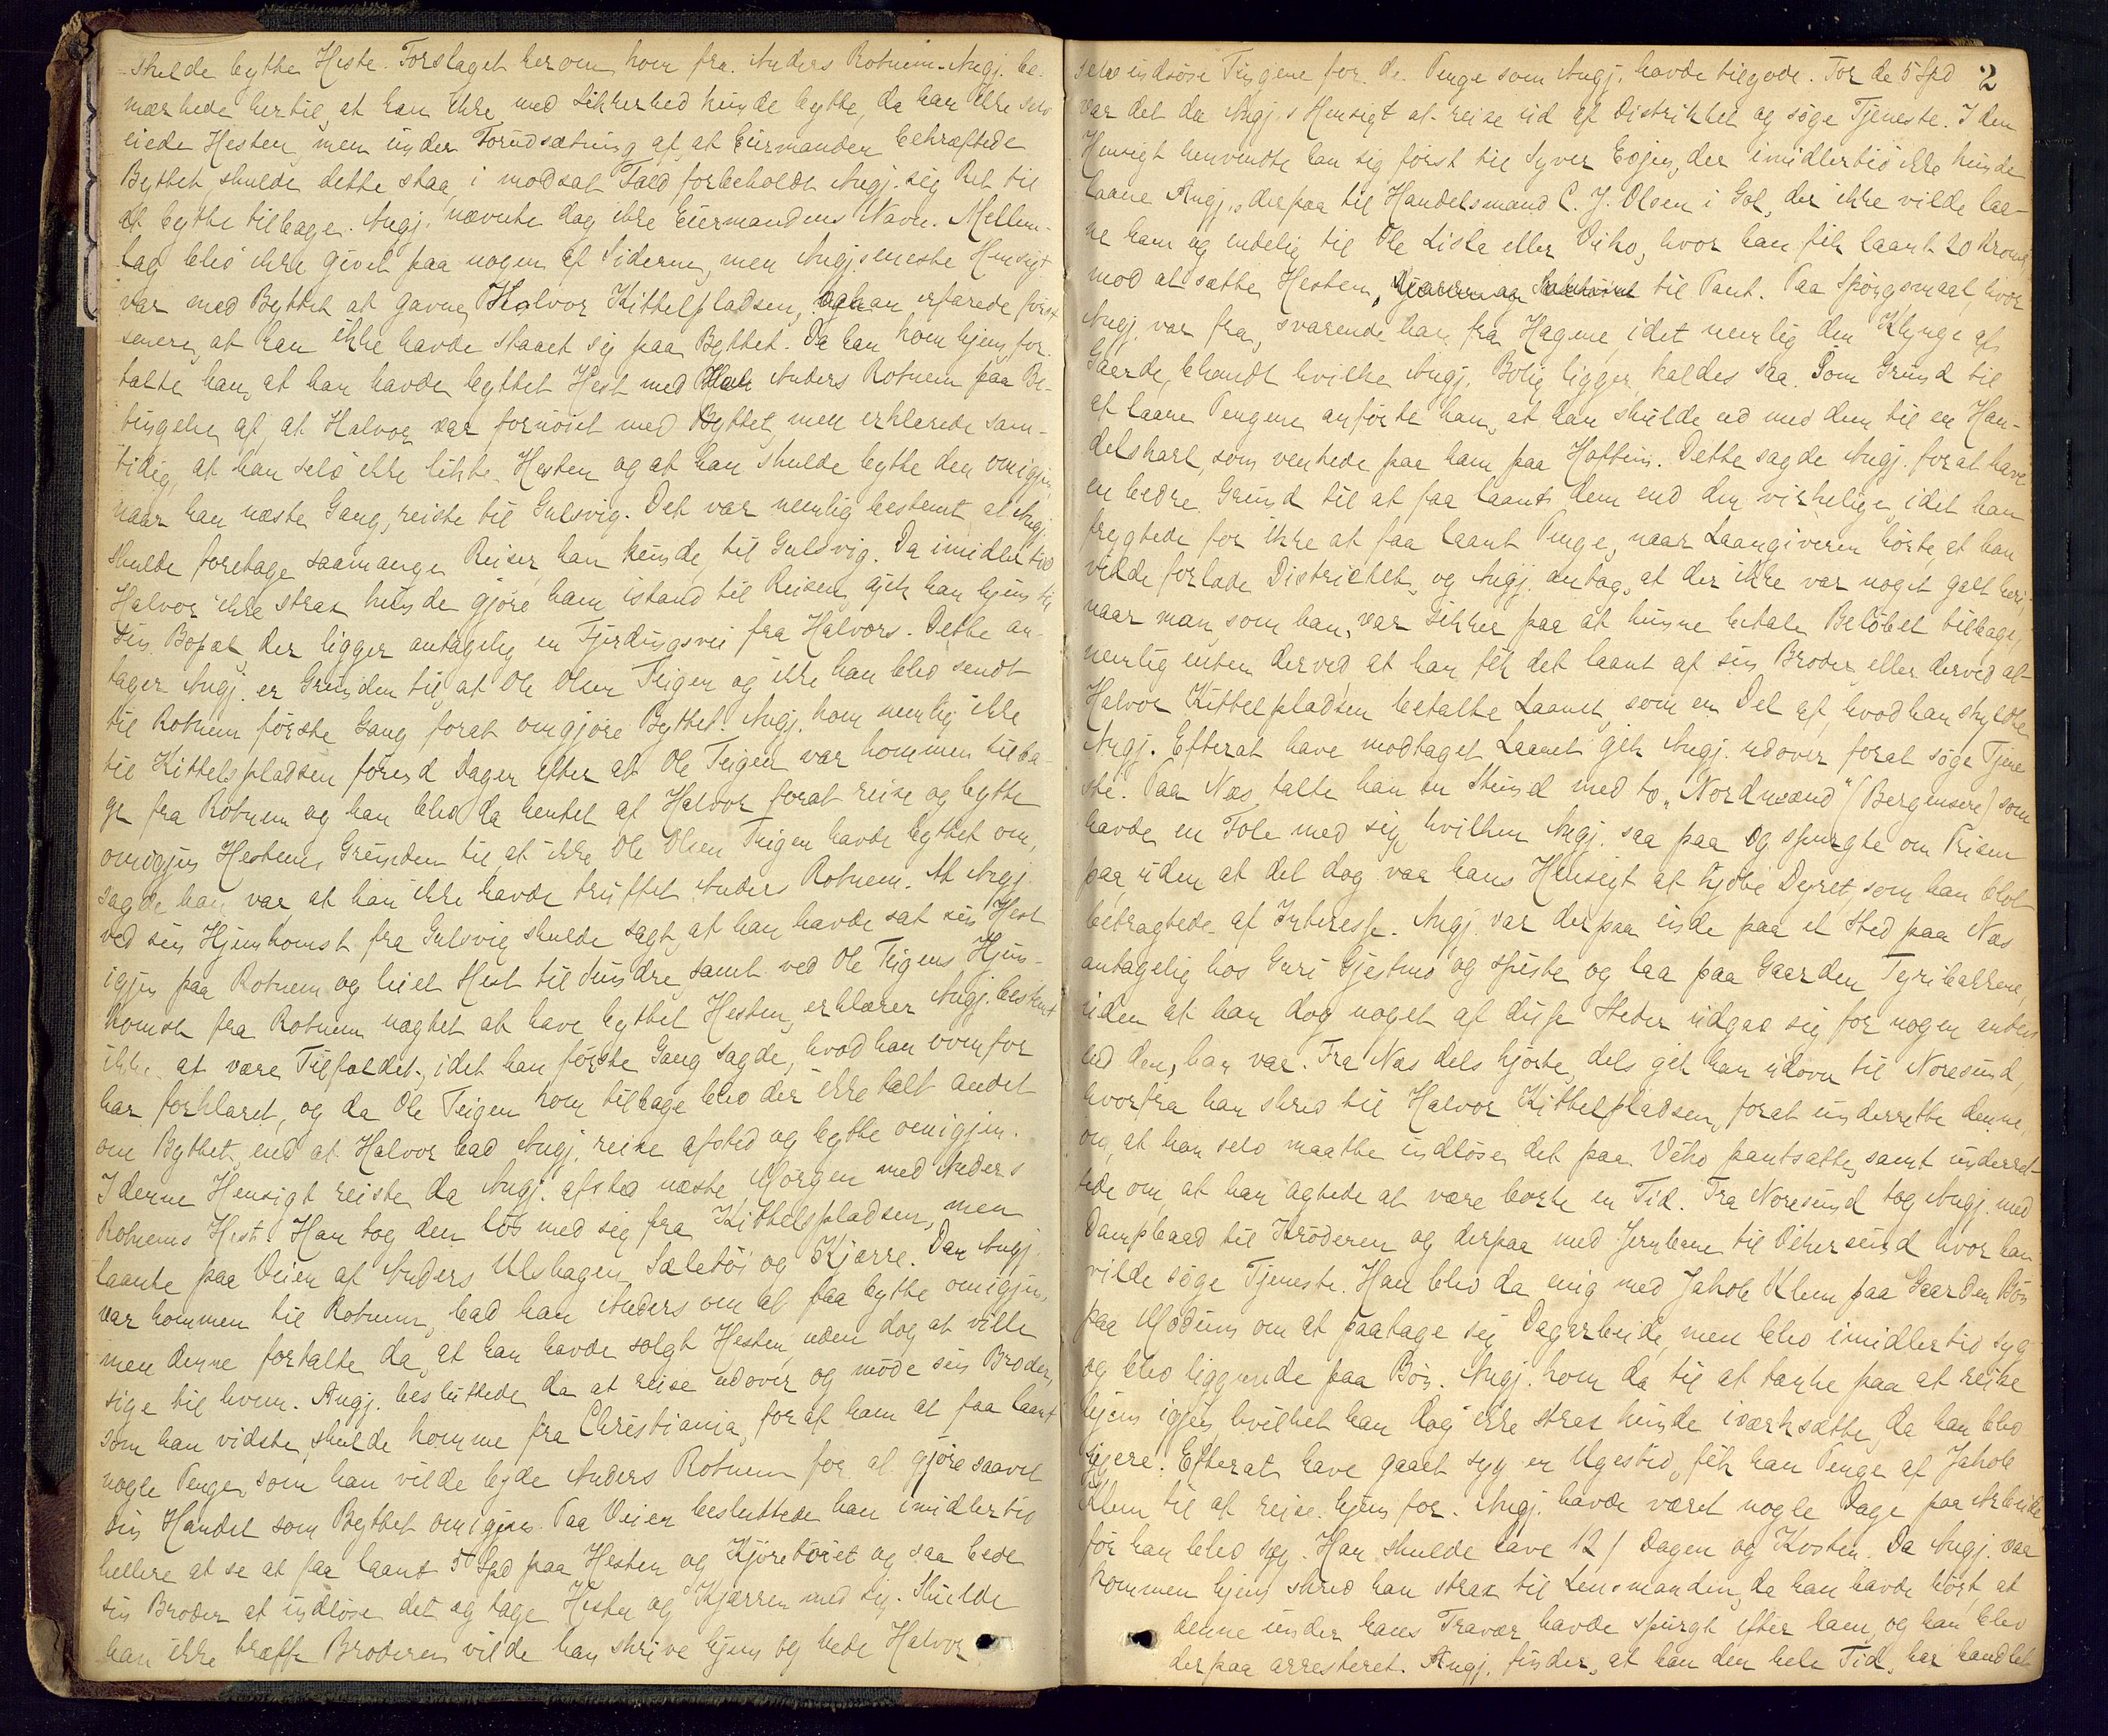 skulde bytte Heste. Forslaget herom kom fra Anders Rotnem. Angj. be-
mærkede hertil, at han ikke med Sikkerhed kunde bytte, da han ikke selv
eiede Hesten, men under Forudsætning af, at Eiermanden bekræftede
Byttet, skulde dette staa, i modsat Fald forbeholdt Angj. sig Ret til
at bytte tilbage. Angj. nævnte dog ikke Eiermandens Navn. Mellem-
lag blev ikke givet paa nogen af Siderne, men Angjs eneste Hensigt
var med Byttet at gavne Halvor Kittelspladsen, og han erfarede først
senere, at han ikke havde staaet sig paa Byttet. Da han kom hjem, for-
talte han, at han havde byttet Hest med Anders Rotnem paa Be-
tingelse af, at Halvor var fornöiet med Byttet, men erklærede sam-
tidig, at han selv ikke likte Hesten og at han skulde bytte den omigjen,
naar han næste Gang reiste til Gulsvig. Det var nemlig bestemt, at Angj.
skulde foretage saamange Reiser, han kunde, til Gulsvig. Da imidlertid
Halvor ikke strax kunde gjöre ham istand til Reisen, gik han hjem til
sin Bopæl, der ligger antagelig en Fjerdingsvei fra Halvors. Dette an-
tager Angj. er Grunden til, at Ole Olsen Teigen og ikke han blev sendt
til Rotnem förste Gang forat omgjöre Byttet. Angj. kom nemlig ikke
til Kittelspladsen förend Dagen efter at Ole Teigen var kommen tilba-
ge fra Rotnem og han blev da hentet af Halvor forat reise og bytte
omigjen Hestene. Grunden til, at ikke Ole Olsen Teigen havde byttet om,
sagde han var, at han ikke havde truffet Anders Rotnem. At Angj.
ved sin Hjemkomst fra Gulsvig skulde sagt, at han havde sat sin Hest
igjen paa Rotnem og leiet Hest til dundre samt ved Ole Teigens Hjem-
komst fra Rotnem nægtet at have byttet Hesten, erklærer Angj. bestemt
ikke at være Tilfældet, idet han förste Gang sagde, hvad han ovenfor
har forklaret, og da Ole Teigen kom tilbage blev der ikke talt andet
om Byttet, end at Halvor bad Angj. reise afsted og bytte omigjen.
I denne Hensigt reiste da Angj. afsted næste Morgen med Anders
Rotnems Hest. Han tog den lös med sig fra Kittelspladsen, men
laante paa Veien af Anders Ulshagen Sæletöi og Kjærre. Da Angj.
var kommen til Rotnem, bad han Anders om at faa bytte omigjen,
men denne fortalte da, at han havde solgt Hesten, uden dog at ville
sige til hvem. Angj. besluttede da at reise udover og möde sin Broder,
som han vidste skulde komme fra Christiania, for af ham at faa laant
nogle Penge, som han vilde byde Anders Rotnem for at gjöre saavel
sin Handel som Byttet omigjen. Paa Veien besluttede han imidlertid
hellere at se at faa laant 5 Spd paa Hesten og Kjöretöiet og saa bede
sin Broder at indlöse det og tage Hesten og Kjærren med sig. Skulde
han ikke træffe Broderen vilde han skrive hjem og bede Halvor
2
selv indlöse Tingene for de Penge som Angj. havde tilgode. For de 5 Spd
var det da Angj.s Hensigt at reise ud af Distriktet og söge Tjeneste. I den
Hensigt henvendte han sig först til Syver Eojen, der imidlertid ikke kunde
laane Angj., derpaa til Handelsmand C. J. Olsen i Gol, der ikke vilde laa-
ne ham og endelig til Ole Lista eller Viko, hvor han fik laant 20 Kroner
mod at sætte Hesten, Kjærren og til Pant. Paa Spörgsmaal, hvor
Angj. var fra, svarede han fra Hagene, idet nemlig den Klynge af
Gaarde, blandt hvilke Angj. Bolig ligger, kaldes saa. Som Grund til
at laane Pengene anförte han, at han skulde ud med dem til en Han-
delskarl, som ventede paa ham paa Haftun. Dette sagde Angj. forat have
en bedre Grund til at faa laant dem end den virkelige, idet han
frygtede for ikke at faa laant Penge, naar Laangiveren hörte, at han
vilde forlade Distriktet, og Angj. antog, at der ikke var noget galt heri,
naar man, som han, var sikker paa at kunne betale Belöbet tilbage,
nemlig enten derved, at han fik det laant af sin Broder eller derved at
Halvor Kittelspladsen betalte Laanet, som en Del af, hvad han skyldte
Angj. Efterat have modtaget Laanet gik Angj. udover forat söge Tjene-
ste. Paa Næs talte han en Stund med to "Nordmænd" (Bergensere) som
havde en Fole med sig, hvilken Angj. saa paa og spurgte om Prisen
paa, uden at det dog var hans Hensigt at kjöbe Dyret, som han blot
betragtede af Interesse. Angj. var derpaa inde paa et Sted paa Næs
antagelig hos Guri Gjestmo og spiste og laa paa Gaarden Tyribakken,
uden at han dog noget af disse Steder udgav sig for nogen anden
end den, han var. Fra Næs dels kjörte, dels gik han udover til Noresund,
hvorfra han skrev til Halvor Kittelspladsen, forat underrette denne
om, at han selv maatte indlöse det paa Viko pantsatte, samt underret-
tede om, at han agtede at være borte en Tid. Fra Noresund tog Angj. med
Dampbaad til Kröderen og derpaa med Jernbane til Vikersund hvor han
vilde söge Tjeneste. Han blev da enig med Jakob Klem paa Gaarden Bön
paa Modum om at paatage sig Dagarbeide, men blev imidlertid syg
og blev liggende paa Bön. Angj. kom da til at tænke paa at reise
hjem igjen, hvilket han dog ikke strax kunde iværksætte, da han blev
sygere. Efterat have gaaet syg en Ugestid, fik han Penge af Jakob
Klem til at reise hjem for. Angj. havde været nogle Dage paa Arbeide
för han blev syg. Han skulde have 12 / Dagen og Kosten. Da Angj. var
kommen hjem skrev han strax til Lensmanden, da han havde hört, at
denne under hans Fravær havde spurgt efter ham, og han blev
derpaa arresteret. Angj. finder, at han den hele Tid har handlet